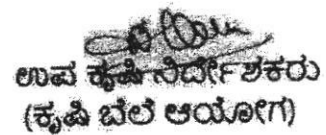 ಉಪ ಕೃಷಿ ನಿರ್ದೇಶಕರು
(ಕೃಷಿ ಬೆಲೆ ಆಯೋಗ)